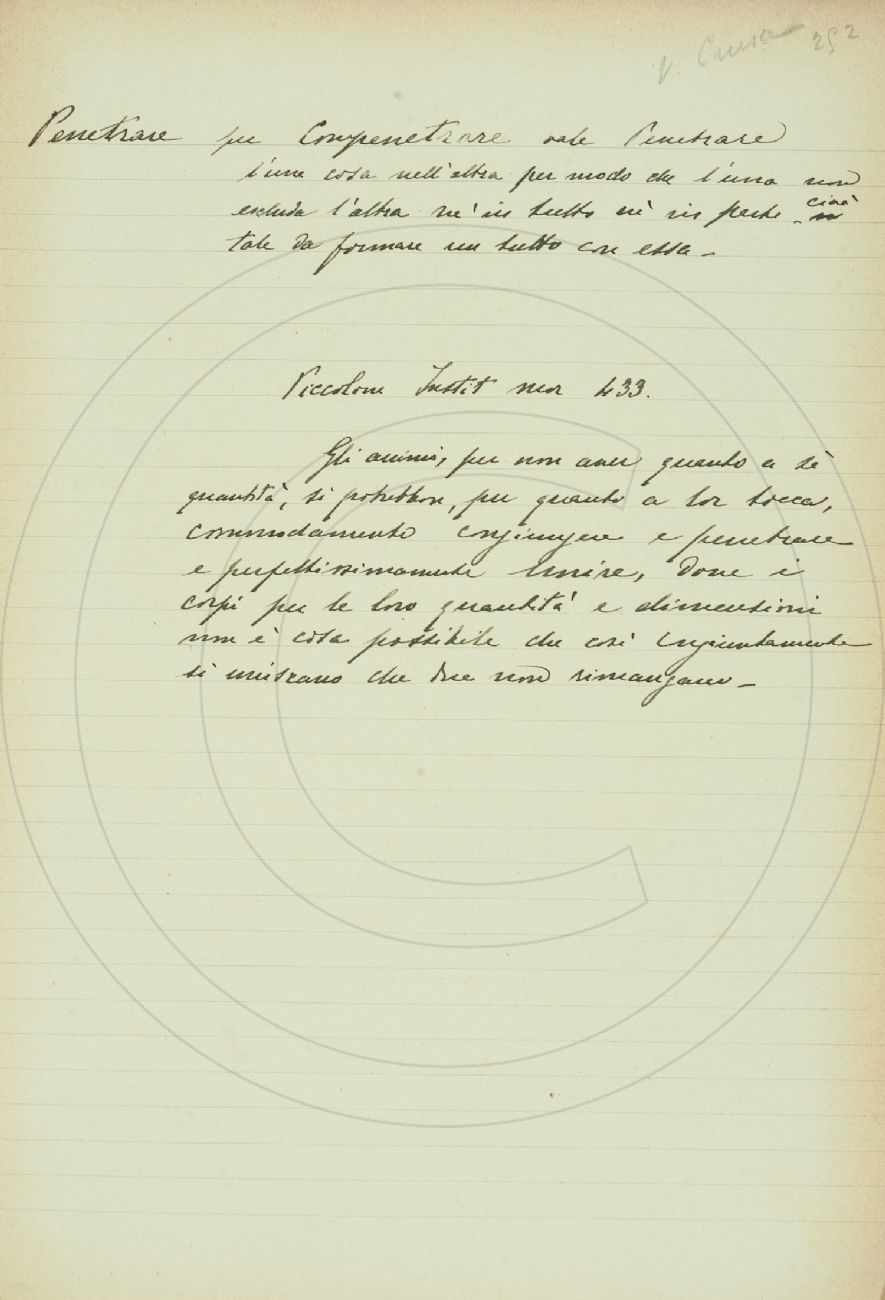 V. Crusca 252
Penetrare per Compenetrare vale Penetrare
l'una cosa nell'altra per modo che l'una non
escluda l'altra nè in tutto nè in parte cioè
tale da formare un tutto con essa –
Piccolom Instit mor 433.
Gli animi, per non aver quanto a sè
quantità, si potrebbon, per quanto a lor tocca,
commodamente congiungere e penetrare
e perfettissimamente unire, dove i
corpi per le loro quantità e dimensioni
non è cosa possibile che così congiuntamente
si uniscano che due non rimangano –